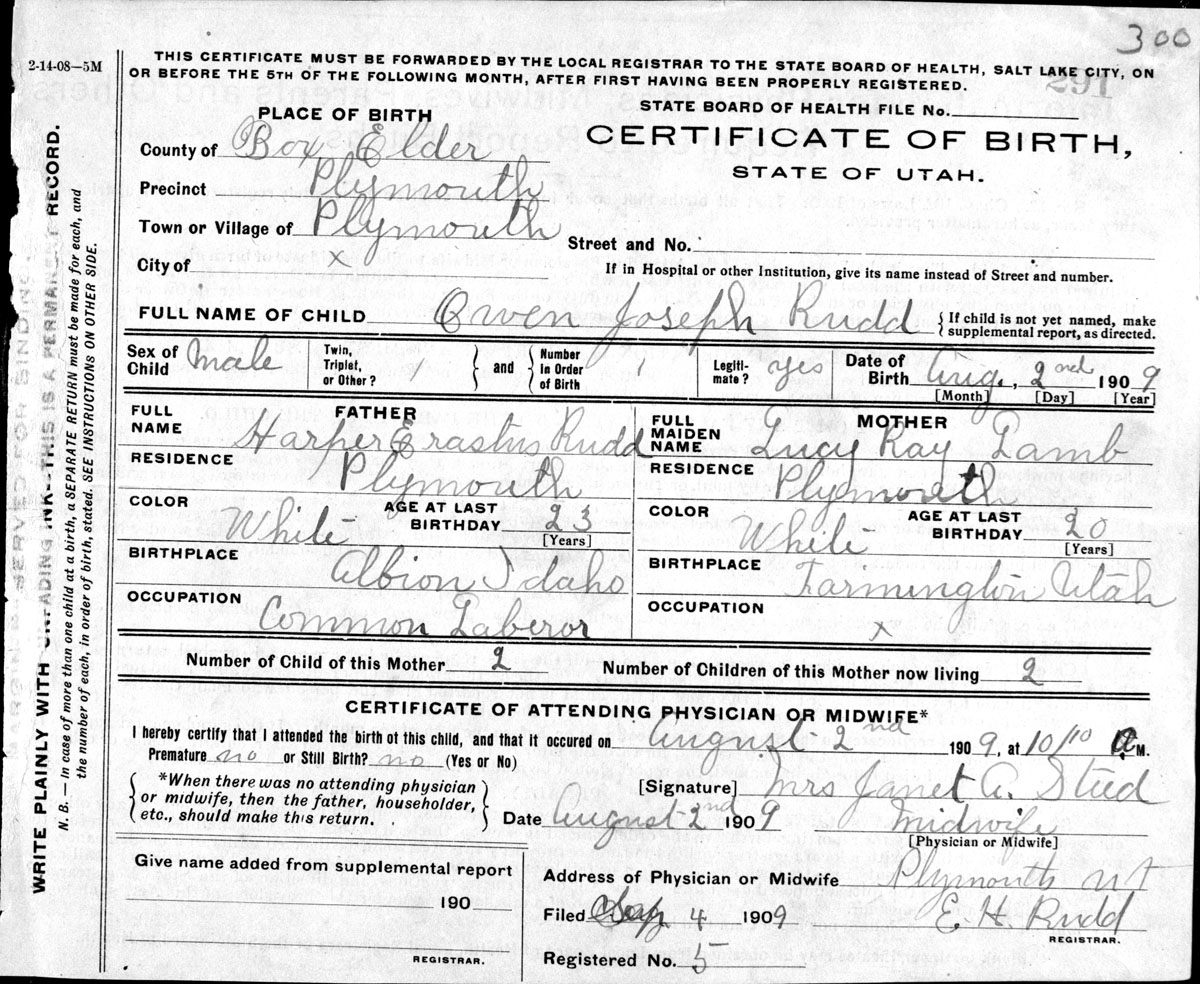 300
2-14-08—5M
THIS CERTIFICATE MUST BE FORWARDED BY THE LOCAL REGISTRAR TO THE STATE BOARD OF HEALTH, SALT LAKE CITY, ON
OR BEFORE THE 5TH OF THE FOLLOWING MONTH, AFTER FIRST HAVING BEEN PROPERLY REGISTERED.
291
STATE BOARD OF HEALTH FILE No.
PLACE OF BIRTH
CERTIFICATE OF BIRTH,
STATE OF UTAH.
County of Box Elder
Precinct Plymouth
Town or Village of Plymouth
Street and No.
City of x
If in Hospital or other Institution, give its name instead of Street and number.
FULL NAME OF CHILD Owen Joseph Rudd { If child is not yet named, make supplemental report, as directed.
Sex of Child male Twin, Triplet, or Other? / } and { Number in Order of Birth / Legiti-mate? yes Date of Birth Aug., 2nd 1909
[Month] [Day] [Year]
FATHER
FULL NAME Harper Erastus Rudd
RESIDENCE Plymouth
COLOR White AGE AT LAST BIRTHDAY 23 [Years]
BIRTHPLACE Albion Idaho
OCCUPATION Common Laberor
MOTHER
FULL MAIDEN NAME Lucy Ray Lamb
RESIDENCE Plymouth
COLOR White AGE AT LAST BIRTHDAY 20 [Years]
BIRTHPLACE Farmington Utah
OCCUPATION x
Number of Child of this Mother 2 Number of Children of this Mother now living 2
CERTIFICATE OF ATTENDING PHYSICIAN OR MIDWIFE*
I hereby certify that I attended the birth of this child, and that it occured on August 2nd 1909, at 10/10 A M.
Premature no or Still Birth? no (Yes or No)
*When there was no attending physician
or midwife, then the father, householder,
etc., should make this return.
[Signature] Mrs Janet A. Steed
Date August 2nd 1909 Midwife
[Physician or Midwife]
Give name added from supplemental report
190
REGISTRAR.
Address of Physician or Midwife Plymouth UT
Filed Sep 4 1909 E. H. Rudd
REGISTRAR.
Registered No. 5
MARGIN RESERVED FOR BINDING
WRITE PLAINLY WITH UNFADING INK—THIS IS A PERMANENT RECORD.
N. B. — In case of more than one child at a birth, a SEPARATE RETURN must be made for each, and
the number of each, in order of birth, stated. SEE INSTRUCTIONS ON OTHER SIDE.